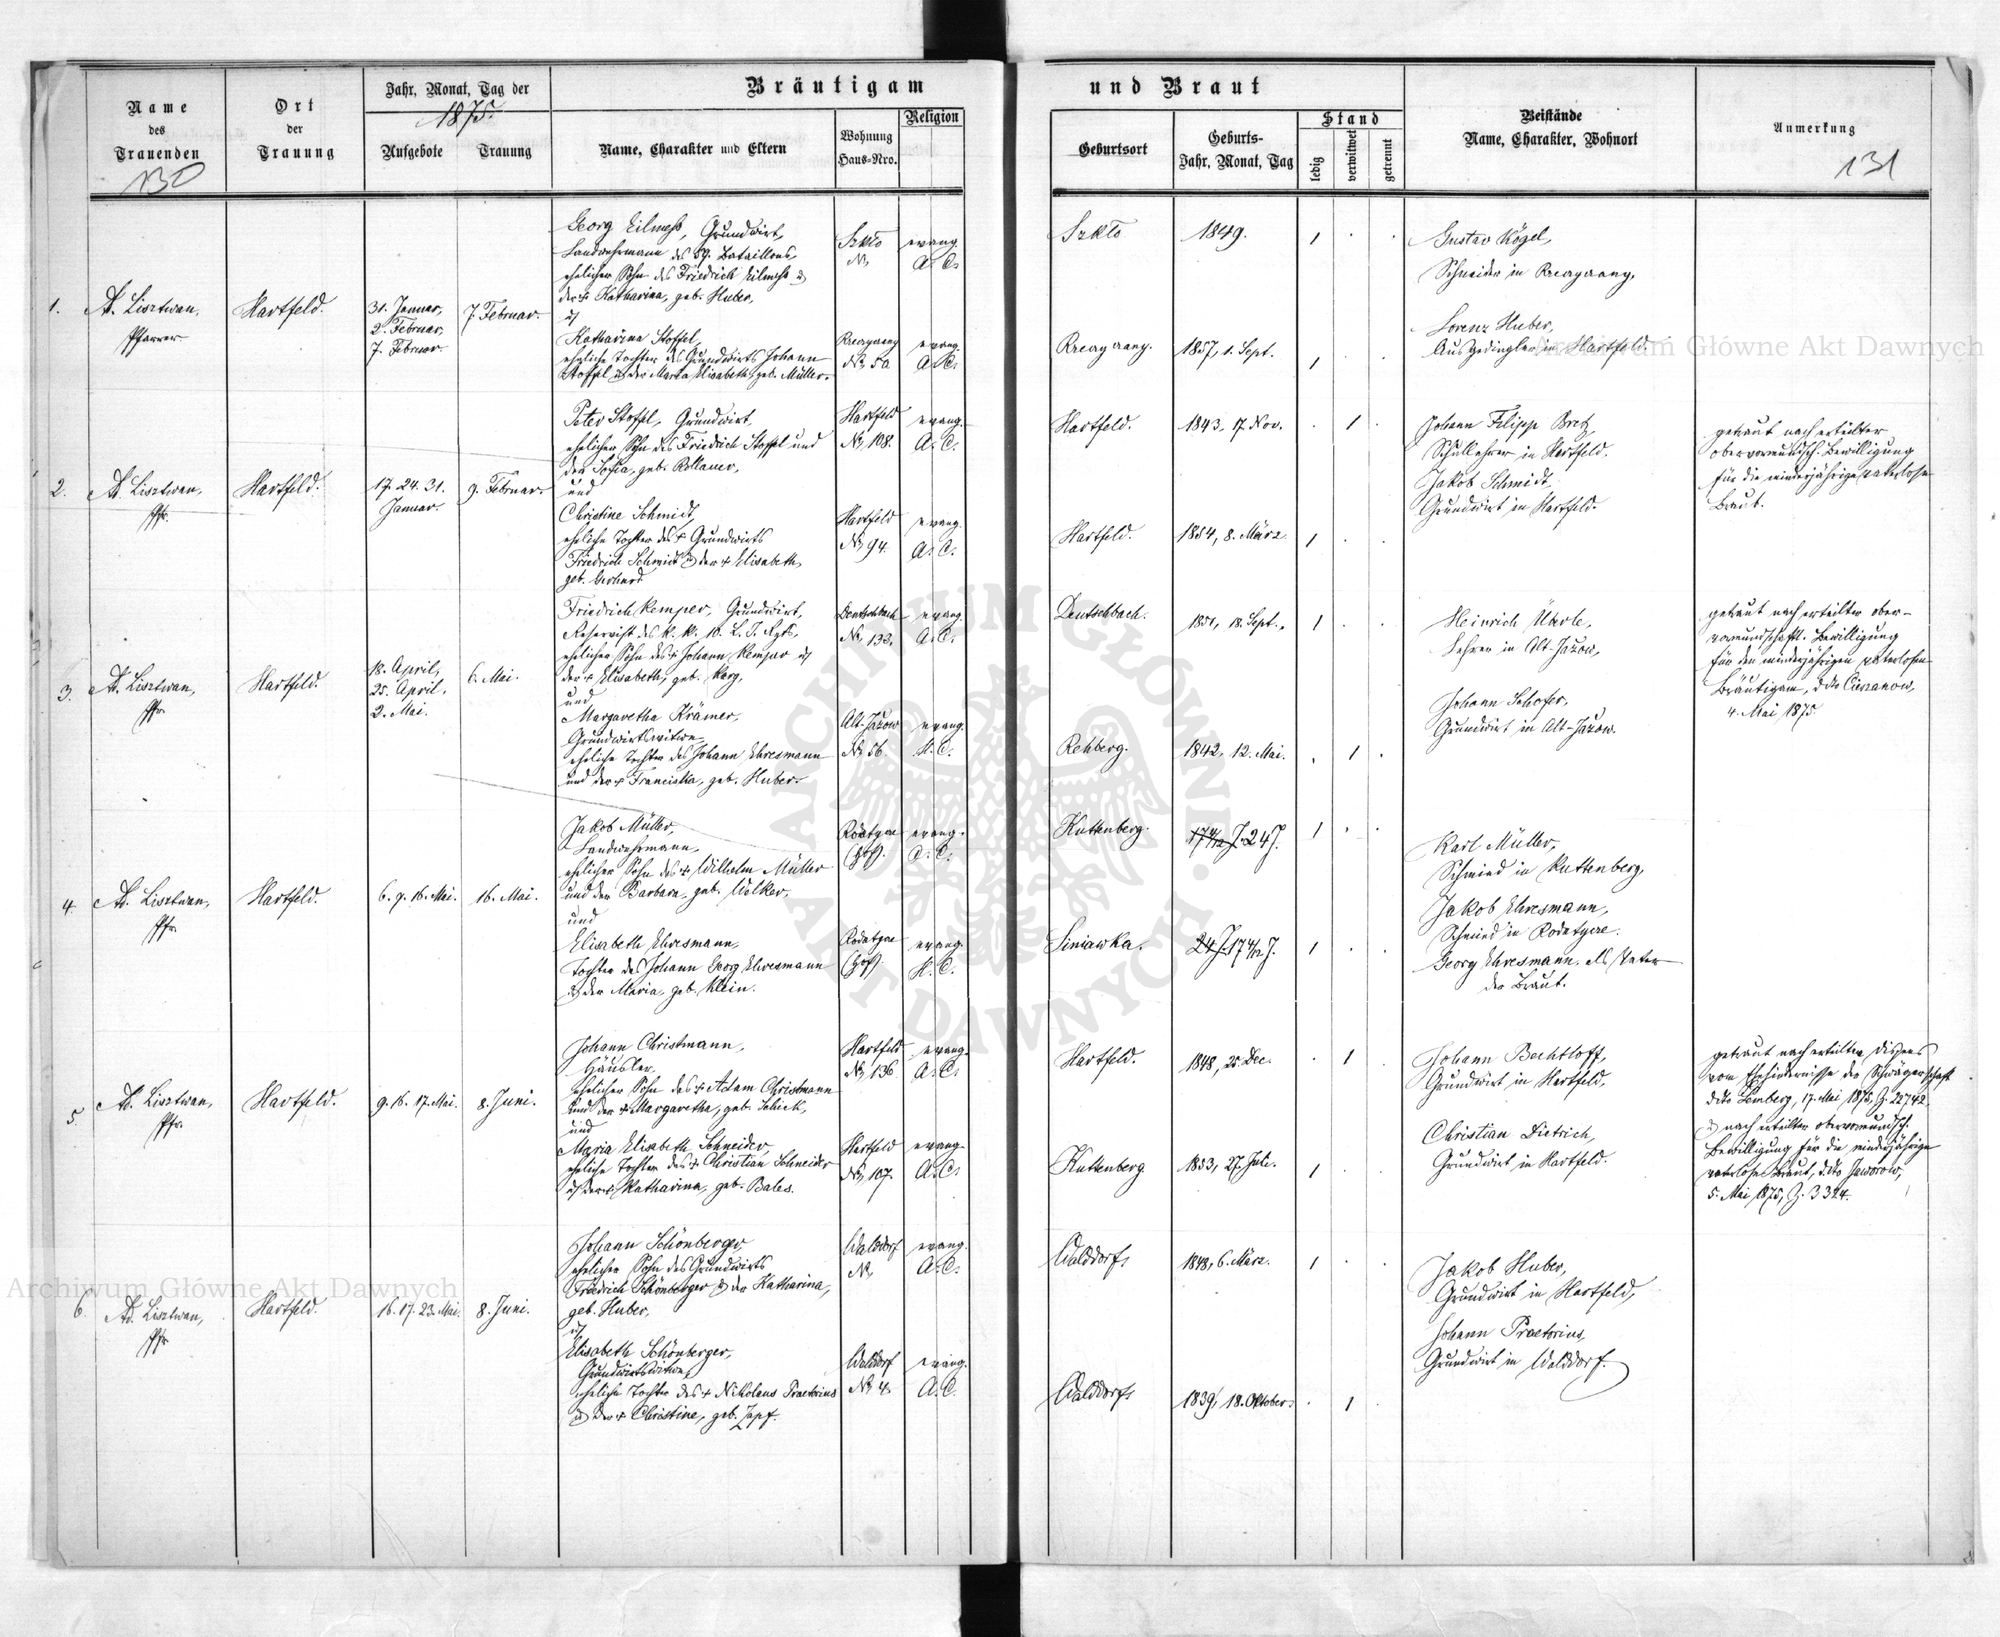 Name
des
Trauenden
130
Ort
der
Trauung
Jahr, Monat, Tag der
1875.
Aufgebote
Trauung
Bräutigam
Name, Charakter und Eltern
Wohnung
Haus-Nro.
Religion
und Braut
Geburtsort
Geburts-
Jahr, Monat, Tag
Stand
ledig
verwitwet
getrennt
Beistände
Name, Charakter, Wohnort
Anmerkung
131
1.
Ad. Lisztwan,
Pfarrer
Hartfeld.
31. Januar,
2. Februar,
7. Februar.
7. Februar.
Georg Eilmes, Grundwirt,
Landwehrmann des 59. Bataillons,
ehelicher Sohn des Friedrich Eilmes &
der + Katharina, geb. Huber,
u/
Katharina Stoffel,
eheliche Tochter des Grundwirts Johann
Stoffel & der Maria Elisabeth geb. Müller.
Szkło
No
evang.
A. C.
No 50
evang.
A. C.
Szkło
1849.
1 . .
1857, 1. Sept.
1
Gustav Kögel,
Schneider in
Lorenz Huber,
Ausgedingler in Hartfeld.
2.
Ad. Lisztwan,
Pfr.
Hartfeld.
17. 24. 31.
Januar.
9. Februar.
Peter Stoffel, Grundwirt,
ehelicher Sohn des Friedrich Stoffel und
der Sofia, geb. Kollauer,
und
Christine Schmidt,
eheliche Tochter des + Grundwirts
Friedrich Schmidt & der + Elisabeth,
geb. Gerhard
Hartfeld
No 108.
evang.
A. C.
Hartfeld
No 94.
evang.
A. C.
Hartfeld.
1843, 17. Nov.
. 1 .
Hartfeld.
1854, 8. März.
1 . .
Johann Filipp Bretz,
Schullehrer in Hartfeld.
Jakob Schmidt,
Grundwirt in Hartfeld.
getraut nach erteilter
obervormundsch. Bewilligung
für die minderjährige vaterlose
Braut.
3.
Ad. Lisztwan,
Pfr.
Hartfeld.
18. April,
25. April,
2. Mai.
6. Mai.
Friedrich Kemper, Grundwirt,
Reservist des k. k. 10. L. I. Rgts,
ehelicher Sohn des + Johann Kemper u/
der + Elisabeth, geb. Karg,
und
Margaretha Krämer,
Grundwirtswitwe,
eheliche Tochter des Johann Ehresmann
und der + Franciska, geb. Huber.
Deutschbach
No 133.
evang.
A. C.
Alt-Jażow
No 56.
evang.
H. C.
Deutschbach.
1851, 18. Sept.
1 . .
Rehberg.
1842, 12. Mai.
. 1 .
Heinrich Überle,
Lehrer in Alt-Jażow,
Johann Schofer,
Grundwirt in Alt-Jażow.
getraut nach erteilter ober-
vormundschaftl. Bewilligung
für den minderjährigen vaterlosen
Bräutigam, ddto Cieszanow,
4. Mai 1875.
4.
Ad. Lisztwan,
Pfr.
Hartfeld.
6. 9. 16. Mai.
16. Mai.
Jakob Müller,
Landwehrmann,
ehelicher Sohn des + Wilhelm Müller
und der Barbara, geb. Welker,
und
Elisabeth Ehresmann,
Tochter des Johann Georg Ehresmann
& der Maria, geb. Klein.
Rodatycze
(Hof).
evang.
A. C.
Rodatycze
(Hof).
evang.
H. C.
Kuttenberg.
17 4/12 J. 24 J.
1 . .
Siniawka.
24 J. 17 4/12 J.
1 . .
Karl Müller,
Schmied in Kuttenberg,
Jakob Ehresmann,
Schmied in Rodatycze.
Georg Ehresmann als Vater
der Braut.
5.
Ad. Lisztwan,
Pfr.
Hartfeld.
9. 16. 17. Mai.
8. Juni.
Johann Christmann,
Häusler,
ehelicher Sohn des + Adam Christmann
und der + Margaretha, geb. Schick,
und
Maria Elisabeth Schneider,
eheliche Tochter des + Christian Schneider
u/ der + Katharina, geb. Bales.
Hartfeld
No 136.
evang.
A. C.
Hartfeld
No 107.
evang.
A. C.
Hartfeld.
1848, 25. Dec.
. 1 .
Kuttenberg
1853, 27. Juli.
1 . .
Johann Bechtloff,
Grundwirt in Hartfeld,
Christian Dietrich,
Grundwirt in Hartfeld.
getraut nach erteilter Dispens
vom Ehehindernisse der Schwägerschaft
ddto Lemberg, 17. Mai 1875, Z. 22742,
& nach erteilter obervormundsch.
Bewilligung für die minderjährige
vaterlose Braut, ddto Jaworow,
5. Mai 1875, Z. 3324.
6.
Ad. Lisztwan,
Pfr.
Hartfeld.
16. 17. 23. Mai.
8. Juni.
Johann Schönberger,
ehelicher Sohn des Grundwirts
Friedrich Schönberger & der Katharina,
geb. Huber,
u/
Elisabeth Schönberger,
Grundwirtswitwe,
eheliche Tochter des + Nikolaus Praetorius
& der + Christine, geb. Zapf.
Walddorf
No
evang.
A. C.
Walddorf
No 4.
evang.
A. C.
Walddorf,
1848, 6. März.
1 . .
Walddorf,
1839, 18. Oktober.
. 1 .
Jakob Huber,
Grundwirt in Hartfeld,
Johann Praetorius,
Grundwirt in Walddorf.
Archiwum Główne Akt Dawnych
Archiwum Główne Akt Dawnych
ARCHIWUM GŁÓWNE AKT DAWNYCH